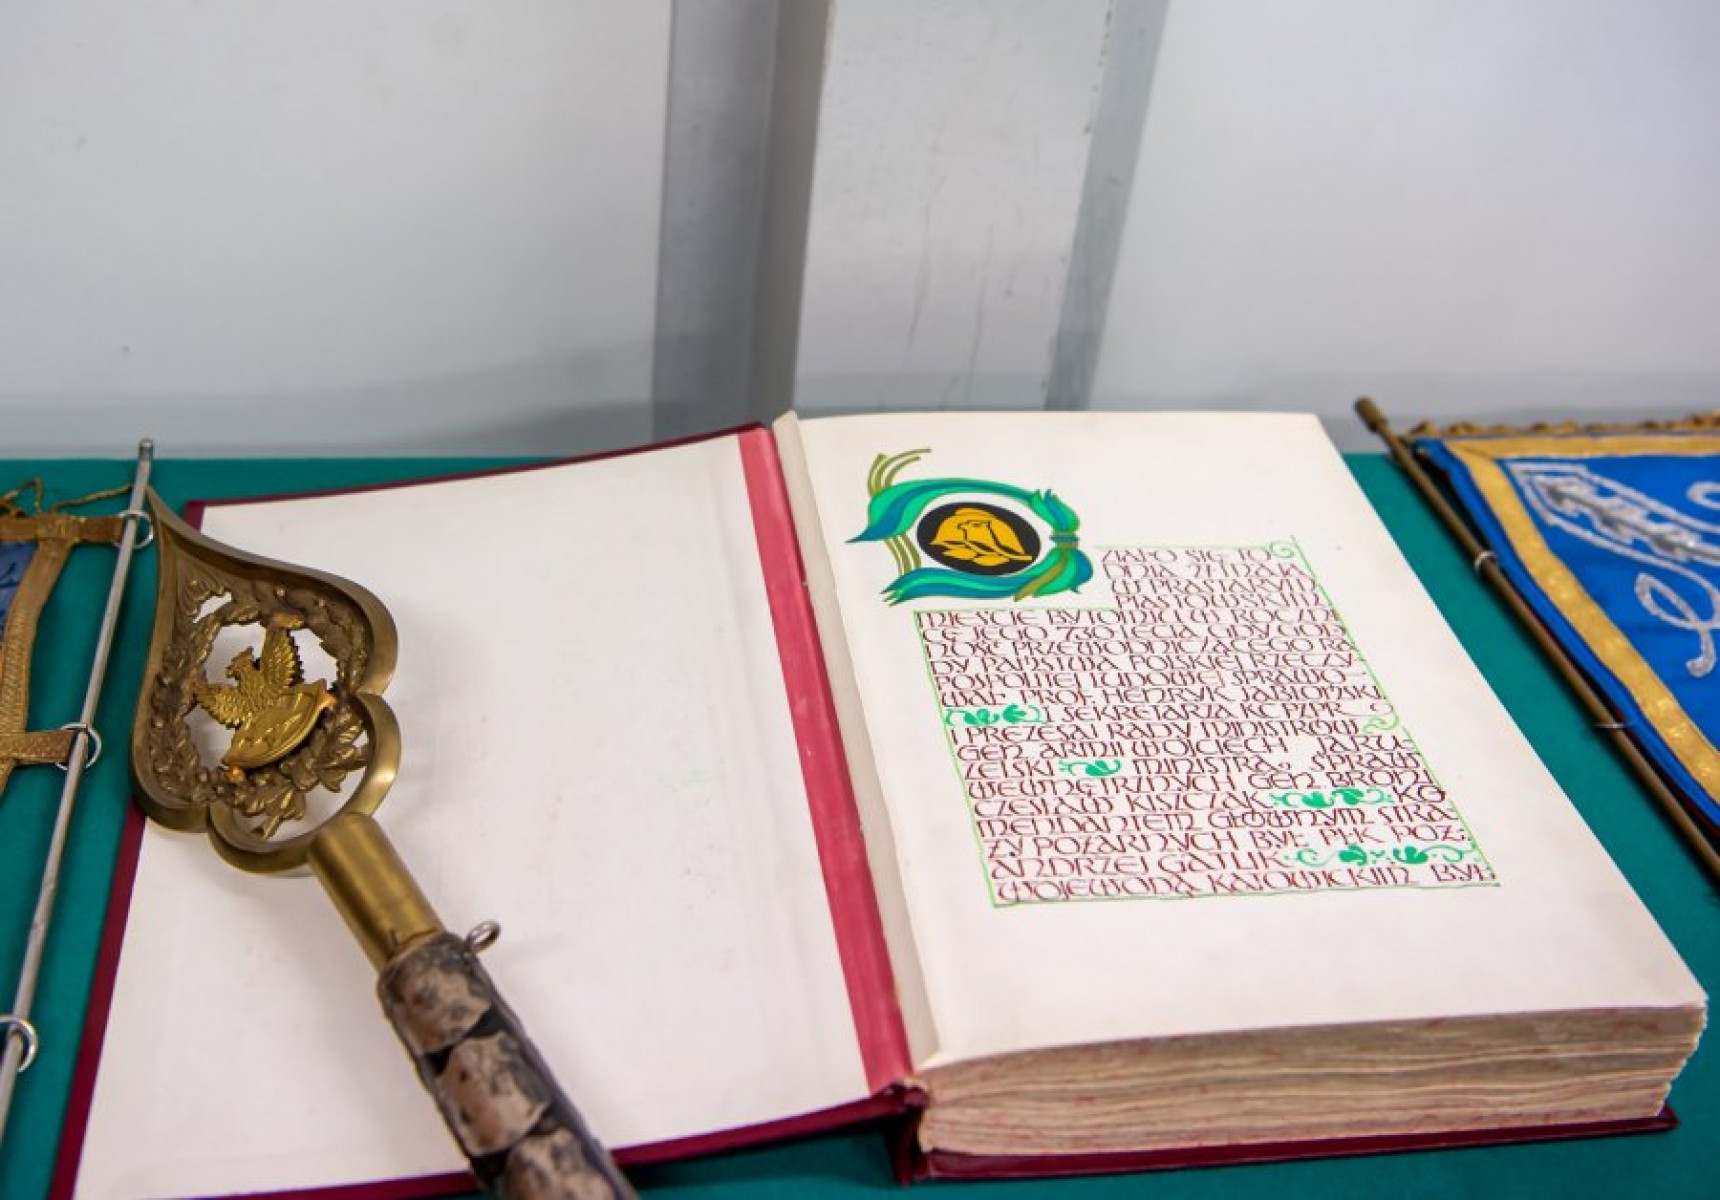 DZIAŁO SIĘ TO
DNIA 24 MAJA
W PRASTARYM
PIASTOWSKIM
MIEŚCIE BYTOMIU W ROCZNI
CĘ JEGO 730 LECIA GDY GOD
NOŚĆ PRZEWODNICZĄCEGO RA
DY PAŃSTWA POLSKIEJ RZECZY
POSPOLITEJ LUDOWEJ SPRAWO
WAŁ PROF. HENRYK JABŁOŃSKI
I SEKRETARZA KC PZPR
I PREZESA RADY MINISTRÓW
GEN. ARMII WOJCIECH JARU-
ZELSKI MINISTRA SPRAW
WEWNĘTRZNYCH GEN. BRONI
CZESŁAW KISZCZAK KO
MENDANTEM GŁÓWNYM STRA
ŻY POŻARNYCH BYŁ PŁK POŻ.
ANDRZEJ GATLIK
WOJEWODĄ KATOWICKIM BYŁ